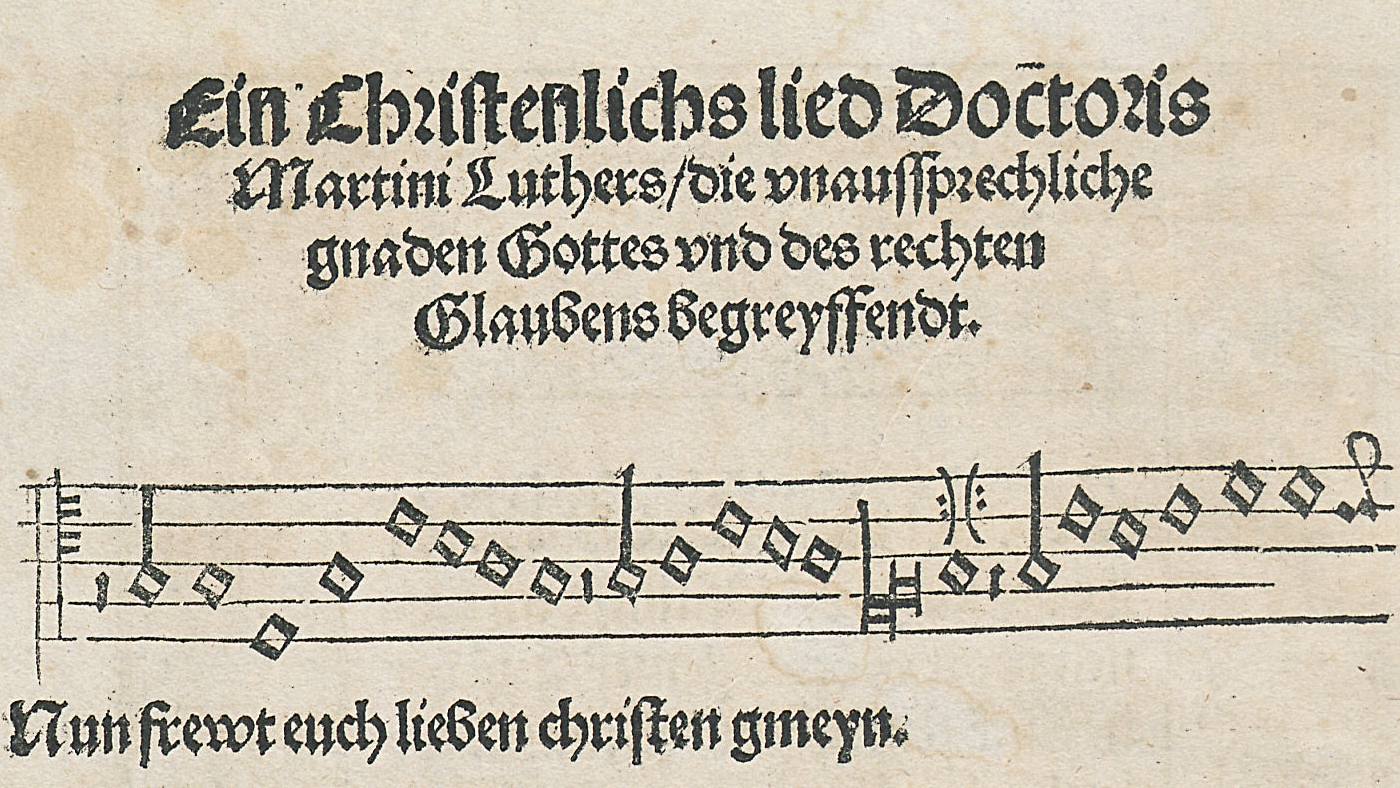 Ein Christenlichs lied Doc̄toris
Martini Luthers/die vnaussprechliche
gnaden Gottes vnd des rechten
Glaubens begreyffendt.
Nun frewt euch lieben christen gmeyn.